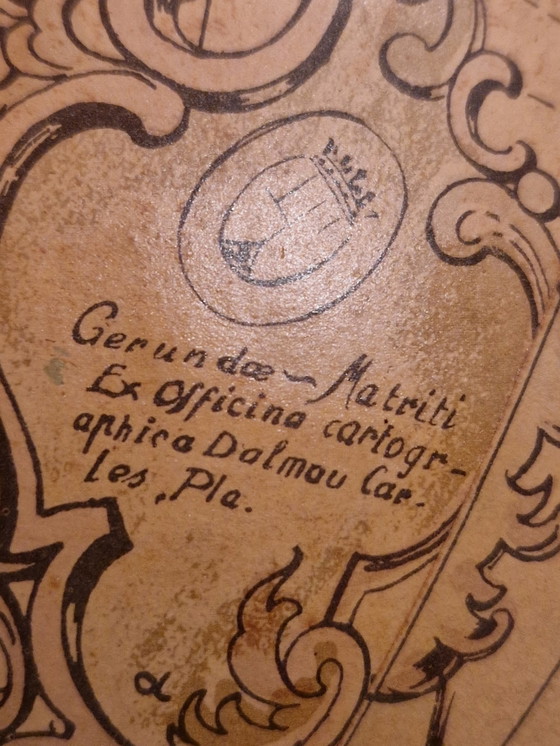 Gerundæ ~ Matriti
Ex Officina cartogr-
aphica Dalmau Car-
les, Pla.